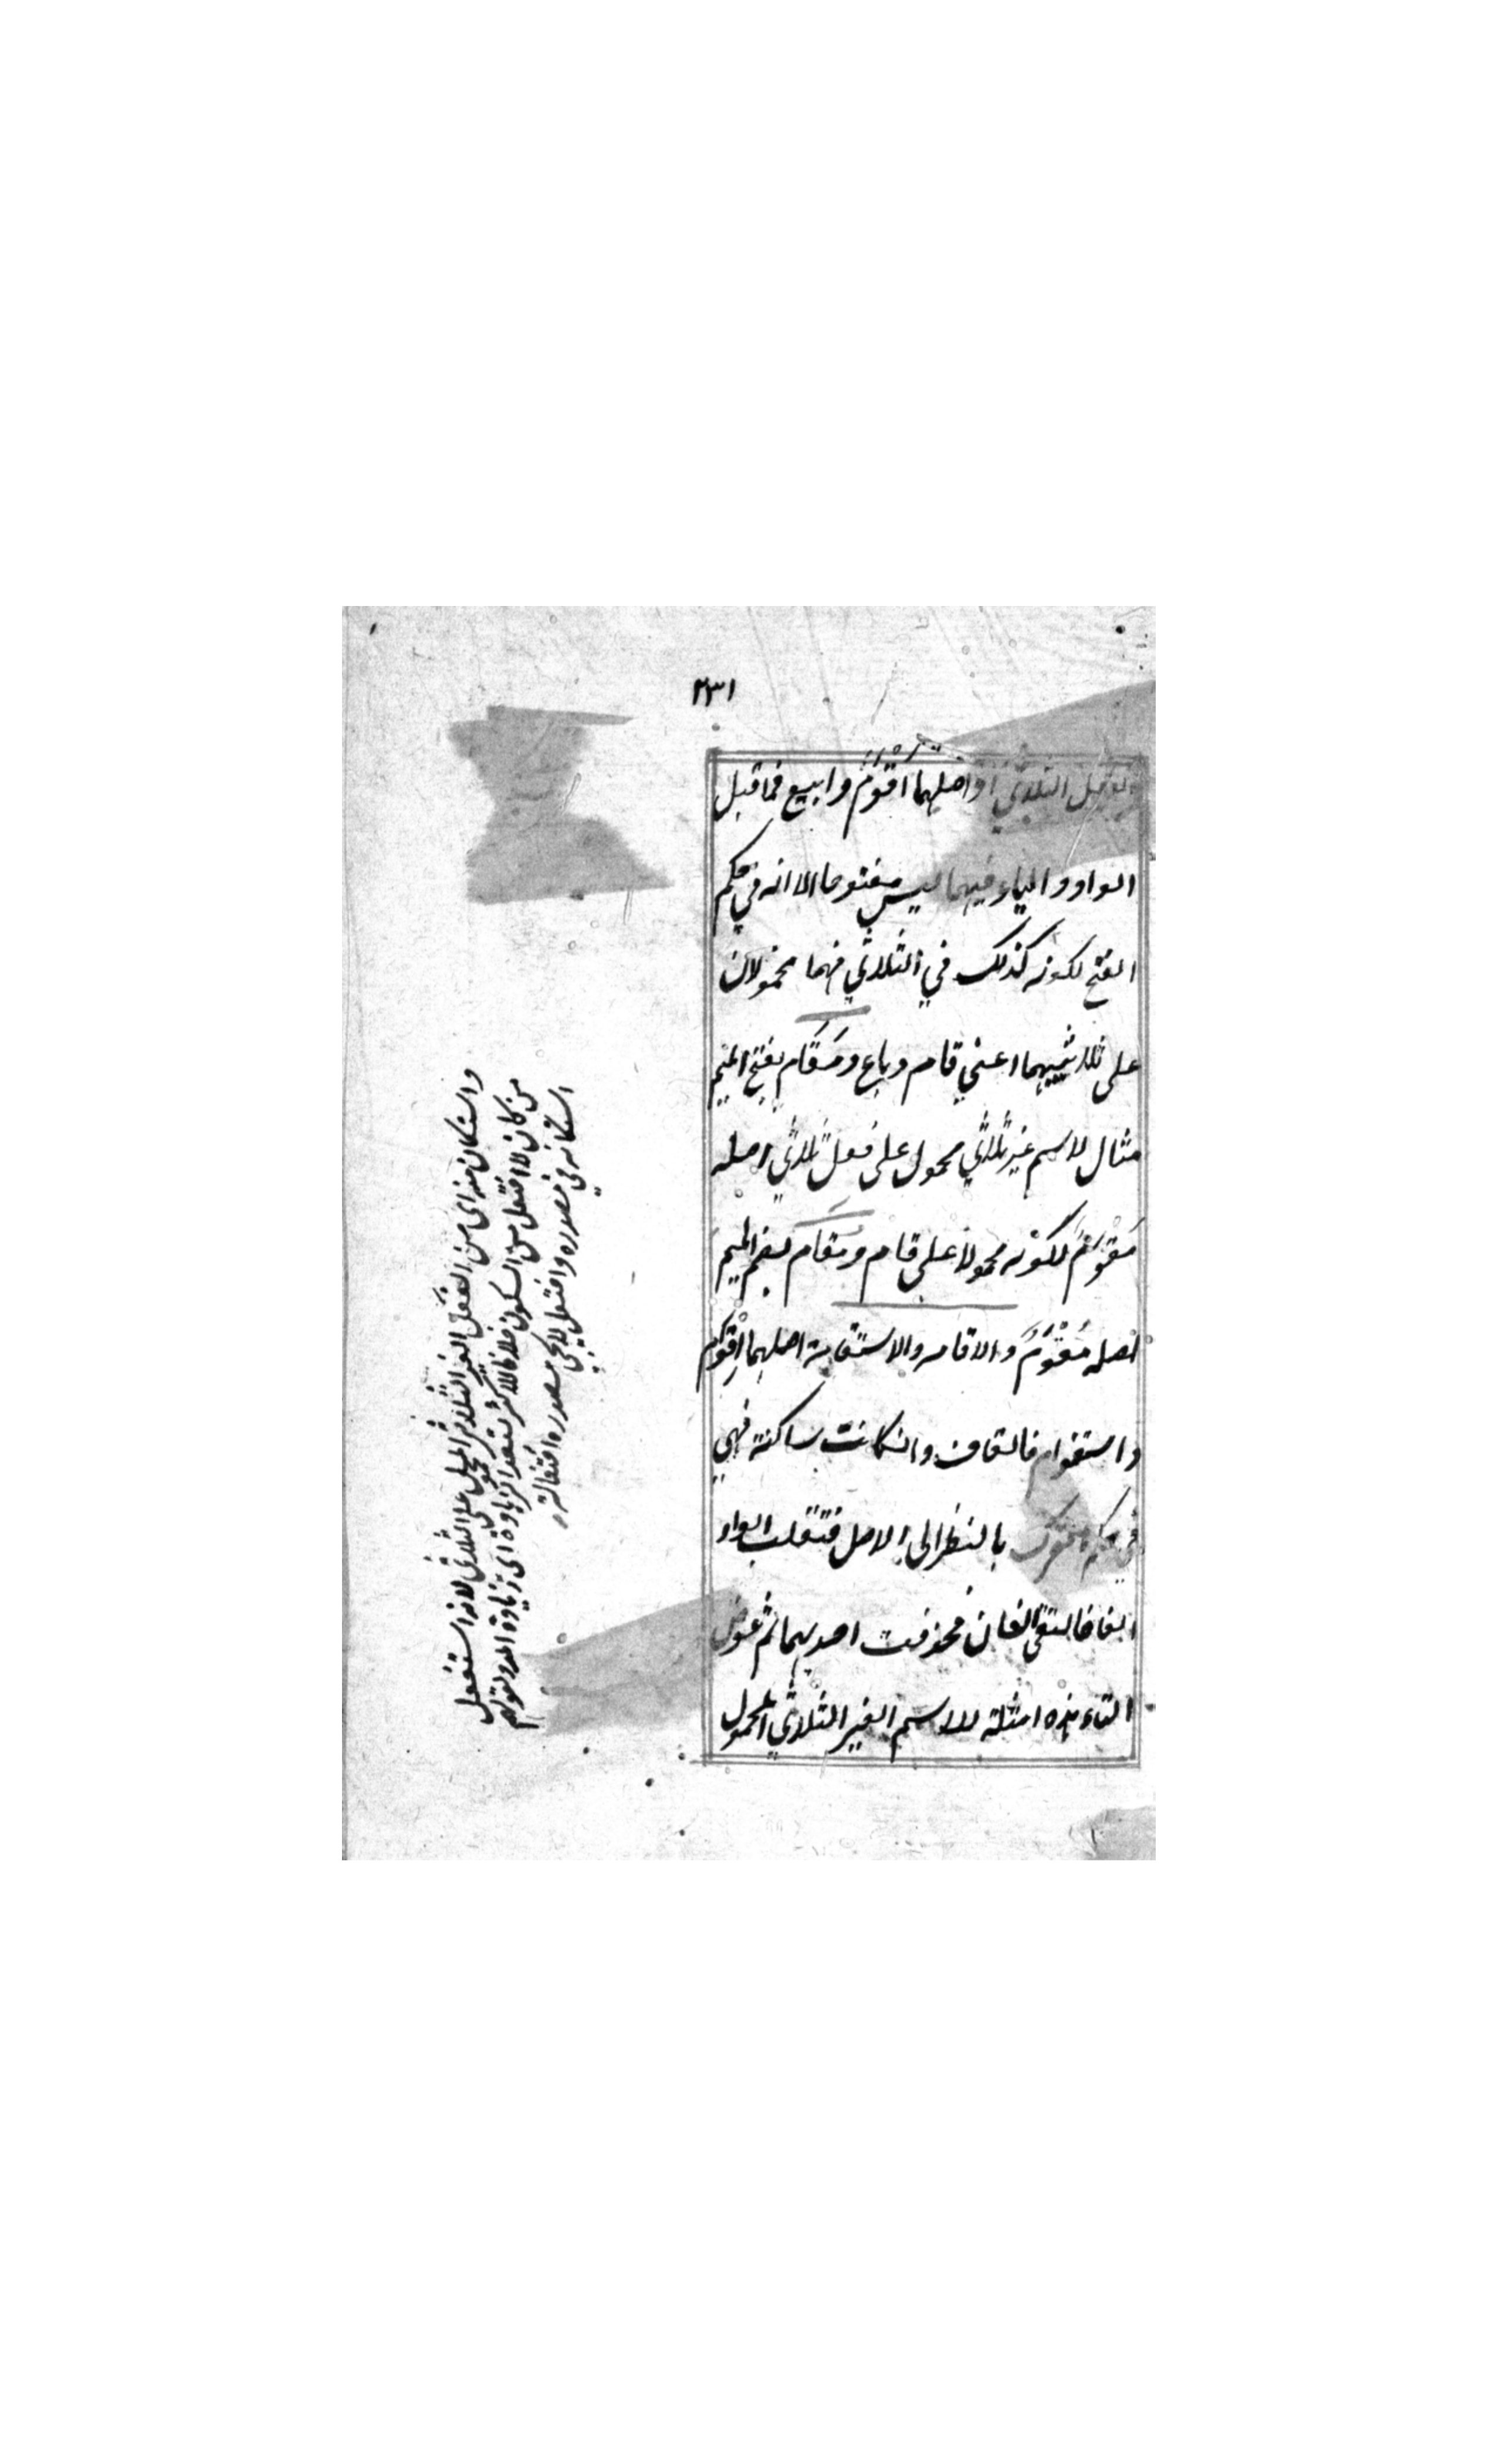 ٢٣١
الثلاثي اواصلهما أَقْوَمَ وابيع فما قبل
الواو والياء فيهما ليس مفتوحا الا انه في حكم
الفتح لكونه كذلك في الثلاثي فهما محمولان
على ثلاثييهما اعني قام وباع ومَقَام بفتح الميم
مثال لاسم غير ثلاثي محمول على فعل ثلاثي اصله
مَقْوَمٌ لكونه محمولا على قام ومُقام بضم الميم
اصله مُقْوَمٌ والاقامه والاستقامة اصلهما اِقْوَام
واستقوام فالقاف وانكانت ساكنة فهي
في حكم متحرك بالنظر الى الاصل فتقلب الواو
الفا فالتقى الفان فحذفت احديهما ثم عوض
التاء هذه امثلة للاسم الغير الثلاثي المحمول
واستكان منه اى من الفعل الغير الثلاثي المحمول على الثلاثي لانه استفعل
من كان لا افتعل من السكون خلافا للاكثر لبعد الزيادة اى زيادة المد ولقولهم
استكانة في مصدره وافتعل لا يجي مصدره افتعالة